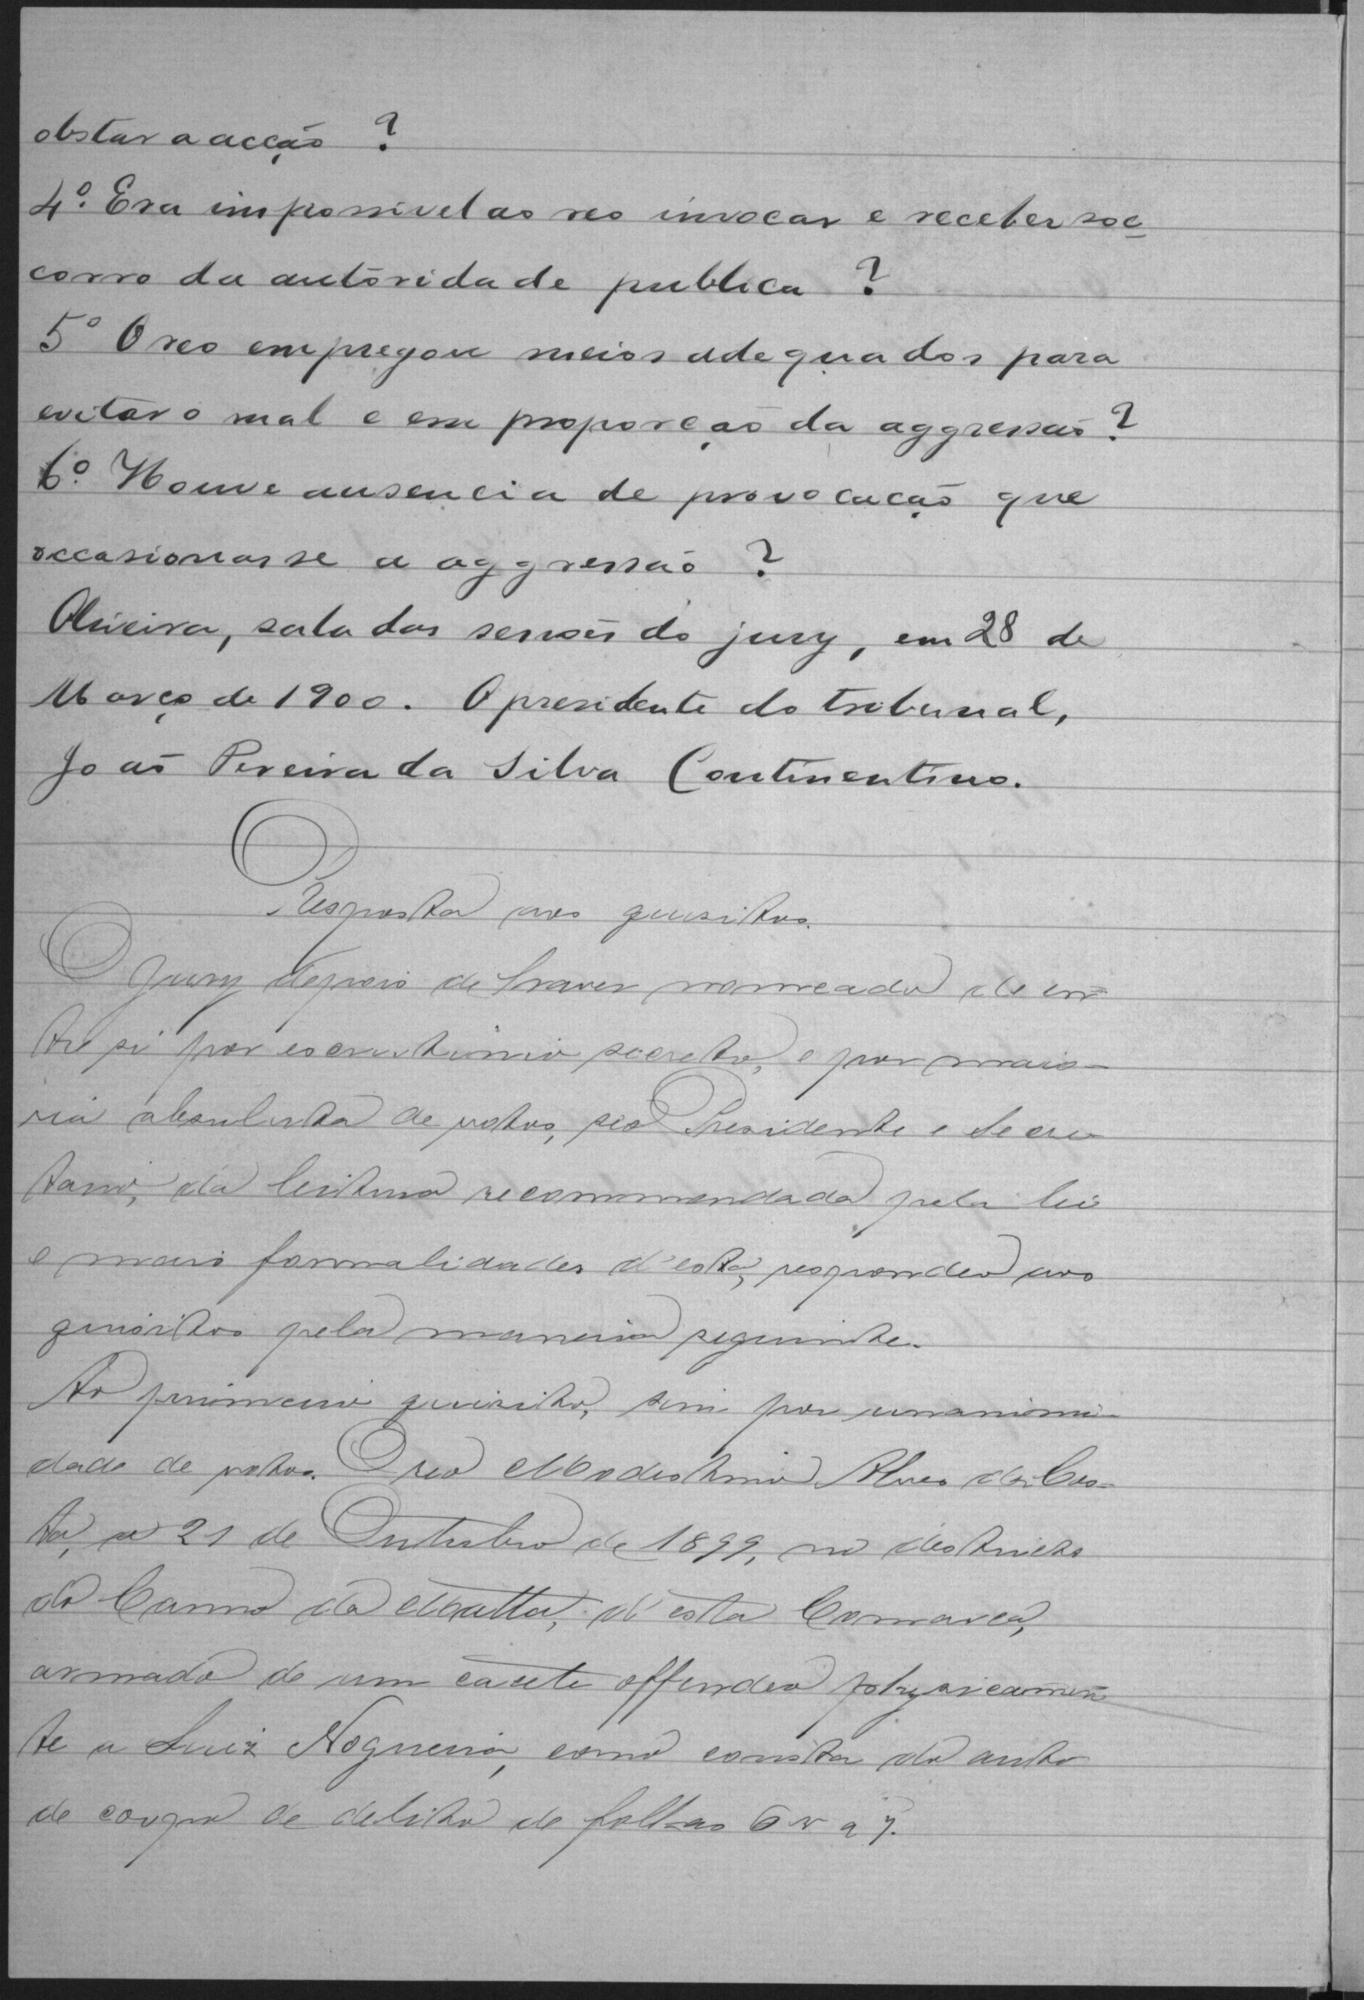 obstar a acção ?
4.º Era impossivel ao reo invocar e receber soc
corro da autoridade publica ?
5º O reo empregou meios adequados para
evitar o mal e em proporção da aggressão ?
6.º Houve ausencia de provocação que
occasionasse a aggressão ?
Oliveira, sala das sessões do jury, em 28 de
Março de 1900. O presidente do tribunal,
João Pereira da Silva Continentino.
Resposta aos quesitos.
O Jury depois de haver nomeado de en-
tre si por escrutinio secreto, e por maio-
ria absoluta de votos, seo Presidente e Secre
tario, da leitura recommendada pela lei
e mais formalidades d'esta, respondeo aos
quisitos pela maneira seguinte.
Ao primeiro quisito, sim por unanimi-
dade de votos. O reo Modestino Alves da Cos-
ta, a 21 de Outubro de 1899, no destricto
do Carmo da Matta, d'esta Comarca,
armado de um cacete offendeo physicamen
te a Luiz Nogueira, como consta do auto
de corpo de delito de folhas 6 v a 7.